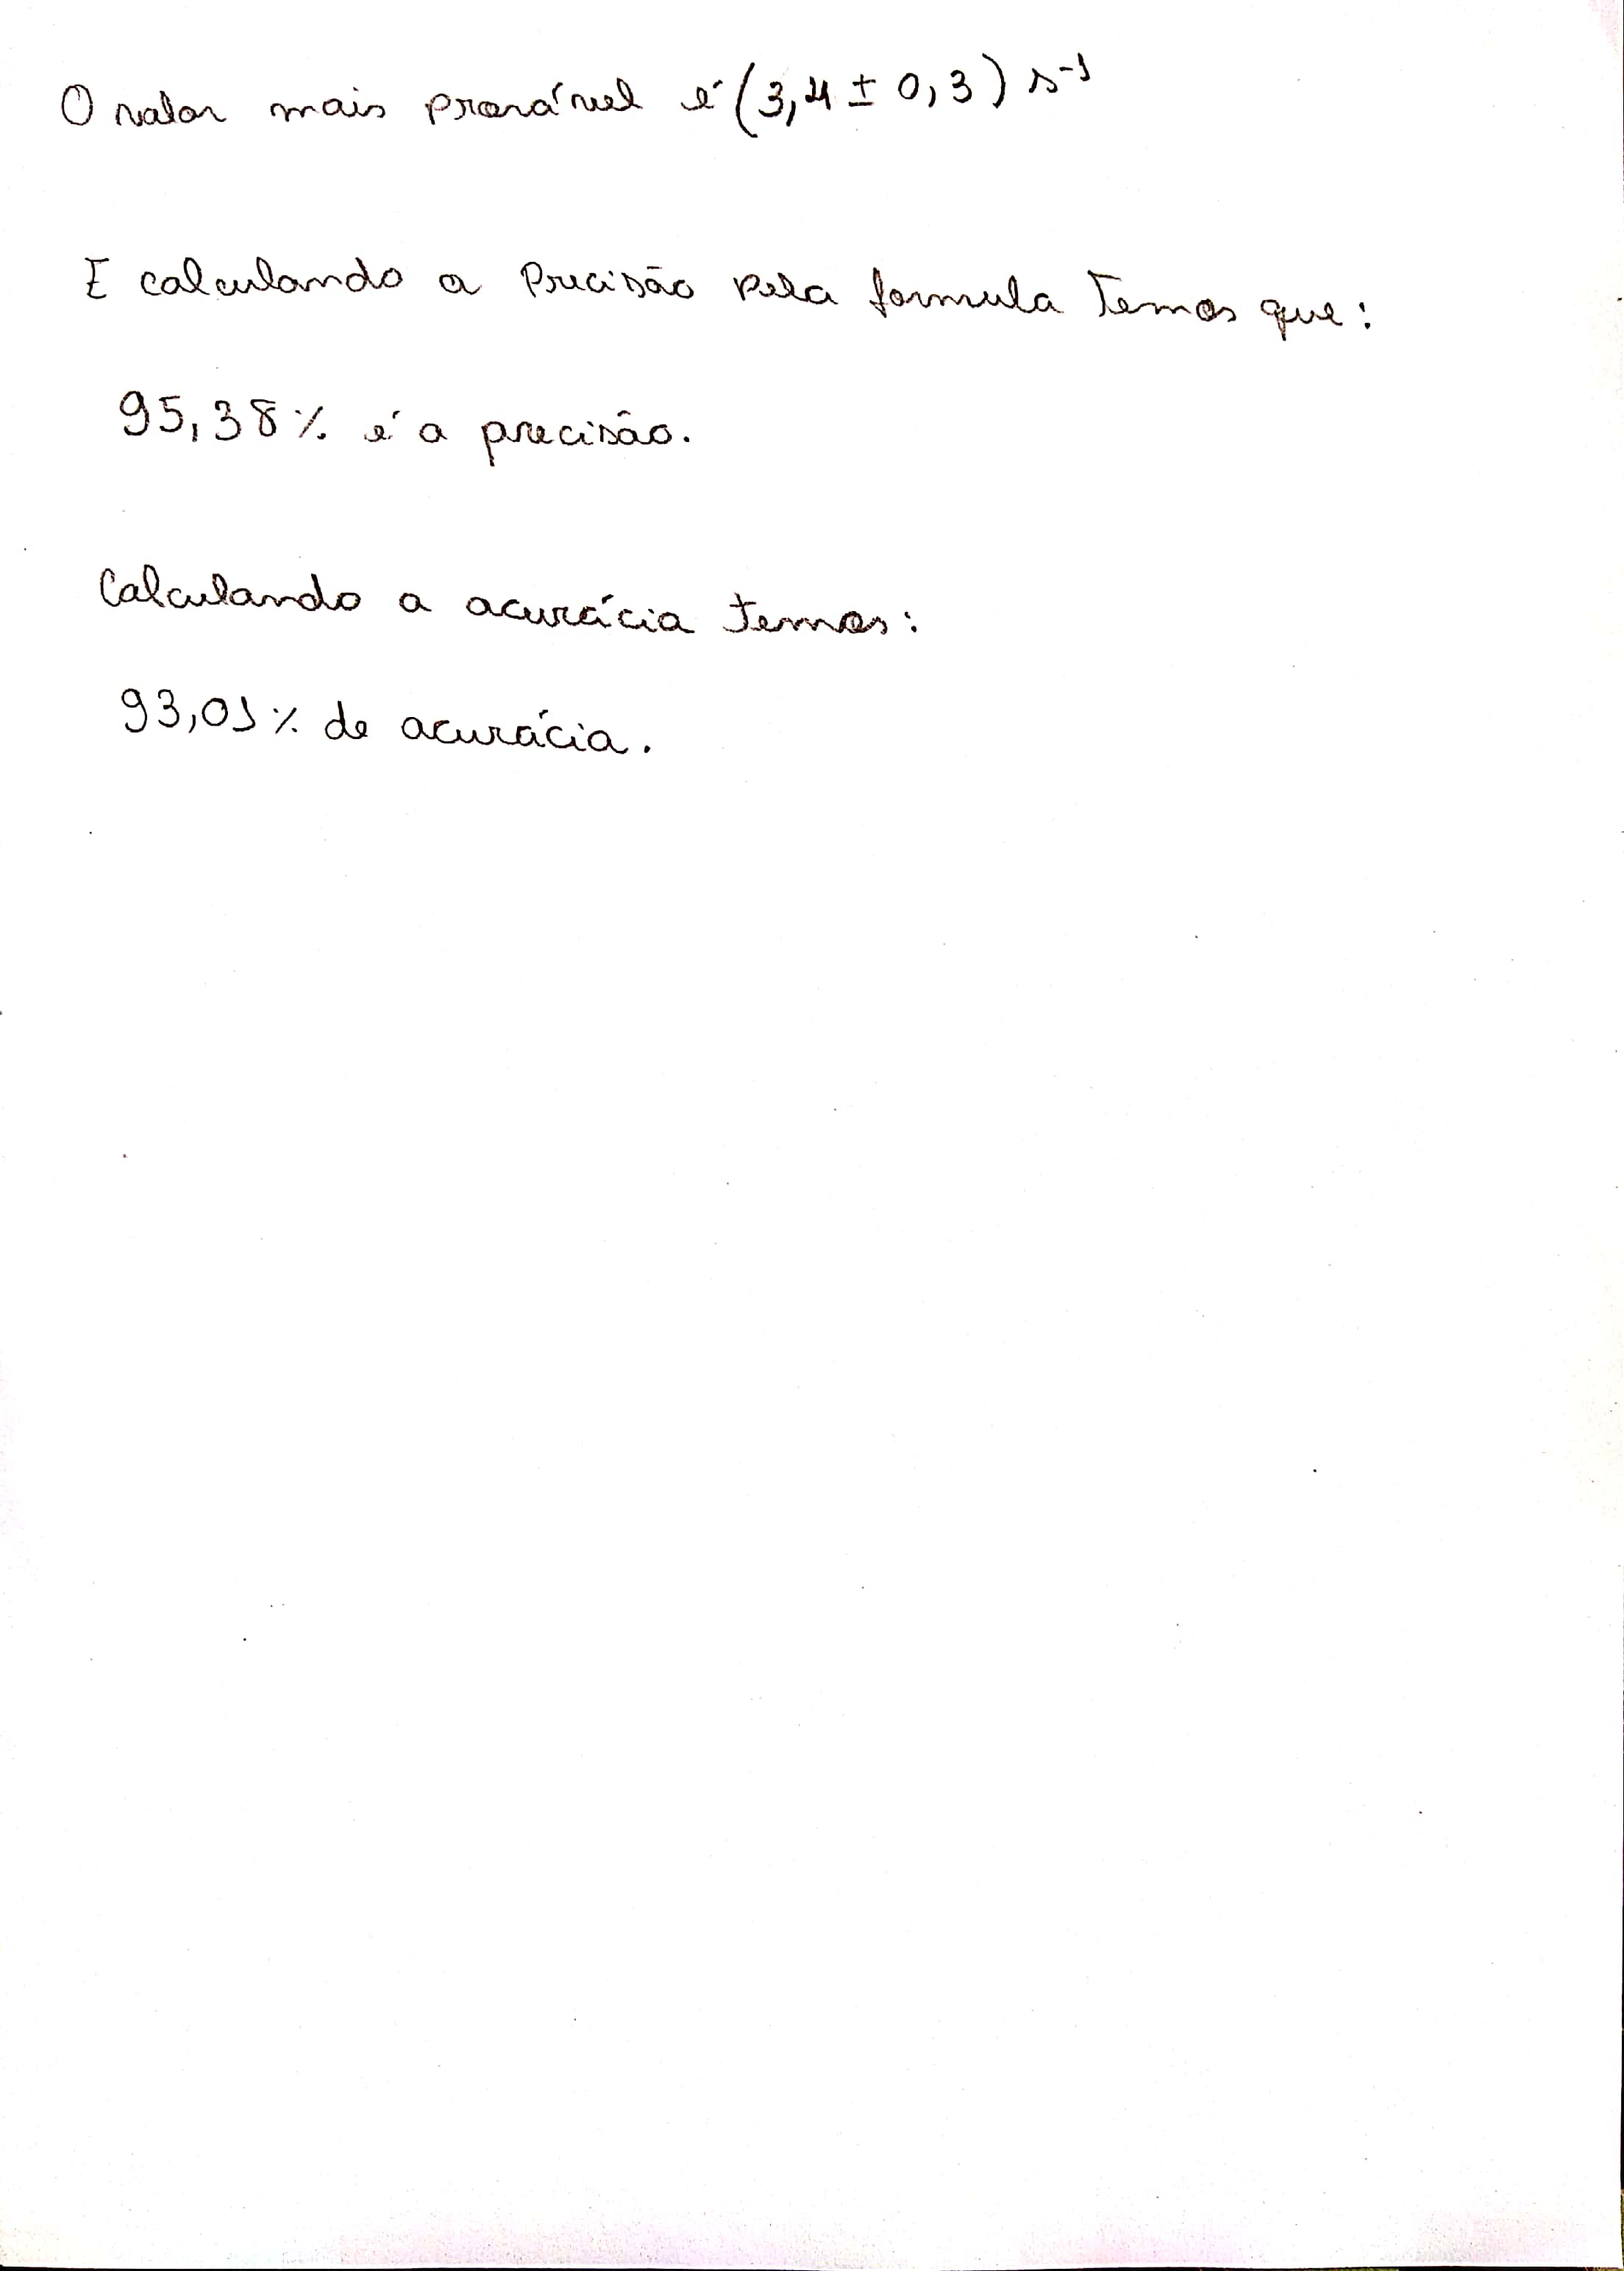 O valor mais provável é (3,4 ± 0,3) s⁻¹
E calculando a Precisão pela formula Temos que:
95,38% é a precisão.
Calculando a acurácia temos:
93,01% de acurácia.